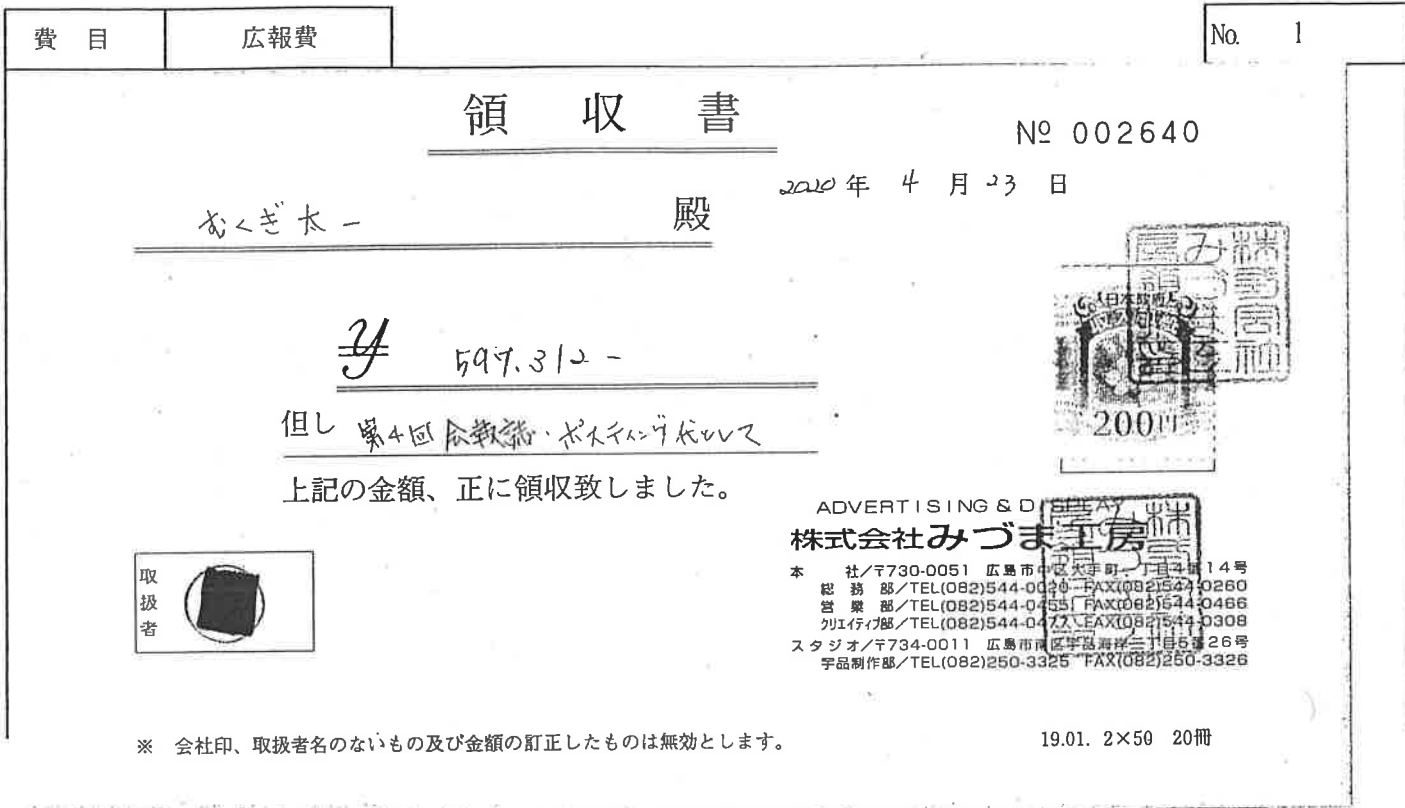 費目 広報費 No. 1
領収書
№ 002640
2020年 4月23日
むくぎ太一 殿
¥ 597.312-
但し 第4回広報誌・ポスティング代として
上記の金額、正に領収致しました。
日本政府
200円
取扱者
ADVERTISING & DISPLAY
株式会社みづま工房
本社/〒730-0051 広島市中区大手町一丁目4番14号
総務部/TEL(082)544-0020 FAX(082)544-0260
営業部/TEL(082)544-0455 FAX(082)544-0466
クリエイティブ部/TEL(082)544-0477 FAX(082)544-0308
スタジオ/〒734-0011 広島市南区宇品海岸三丁目5番26号
宇品制作部/TEL(082)250-3325 FAX(082)250-3326
※ 会社印、取扱者名のないもの及び金額の訂正したものは無効とします。
19.01. 2×50 20冊